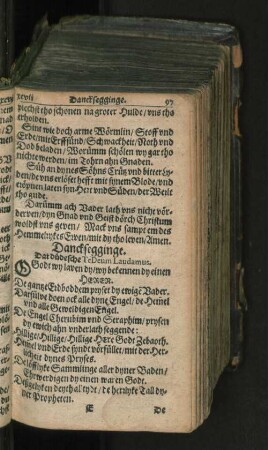 Dancksegginge. 97
plechst tho schonen na groter Hulde / vns tho
erholden.
Sint wie doch arme Wörmlin / Stoff vnd
Erde / mit Erffsünd / Schwacheit / Noth vnd
Dod beladen / Worümm schölen wy gar tho
nichte werden / im Torhn ahn Gnaden.
Süh an dynes Söhns Crütz vnd bitter
de / de vns erlöset hefft mit synem Blode / vnd
vmme syn Hert vnd Süden / der Welt
tho gude.
Darümm ach Vader lath vns nicht vör-
derven / dyn Gnad vnd Geist dörch Christum
woldst vns geven / Mack vns sampt em des
Hemmelrykes Erven / mit dy tho leven / Amen.
Dancksegginge.
Dat düdesche TeDeum Laudamus.
O Godt wy laven dy / wy bekennen dy einen
HEREN.
De gantze Erdboddem pryset dy ewige Vader.
Darsülve doen ock alle dyne Engel / de Hemel
vnd alle Geweldigen Engel.
De Engel Cherubim vnd Seraphim / prysen
dy ewich ahn vnderlath seggende:
Hillige / Hillige / Hillige HEre Godt Zebaoth.
Hemel vnd Erde synth vörfüllet / mit der Her-
licheit dynes Pryses.
De löfflyke Sammlinge aller dyner Baden /
Ehrwerdigen dy einen waren Godt.
Deßgelyken deyth al tydt / de herlyke Tall dy-
ner Propheten.
De